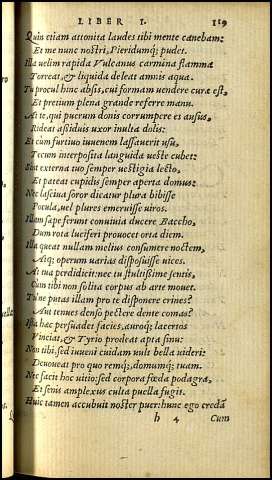 LIBER I. 119
Quin etiam attonita laudes tibi mente canebam:
Et me nunc nostri, Pieridumq; pudet.
Illa uelim rapida Vulcanus carmina flamma
Torreat, & liquida deleat amnis aqua.
Tu procul hinc absis, cui formam uendere cura est,
Et pretium plena grande referre manu.
At te, qui puerum donis corrumpere es ausus,
Rideat assiduis uxor inulta dolis:
Et cum furtiuo iuuenem lassauerit usu,
Tecum interposita languida ueste cubet:
Sint externa tuo semper uestigia lecto,
Et pateat cupidis semper aperta domus:
Nec lasciua soror dicatur plura bibisse
Pocula, uel plures emeruisse uiros.
Illam sæpe ferunt conuiuia ducere Baccho,
Dum rota luciferi prouocet orta diem.
Illa queat nullam melius consumere noctem,
Atq; operum uarias disposuisse uices.
At tua perdidicit: nec tu stultissime sentis,
Cum tibi non solita corpus ab arte mouet.
Tu'ne putas illam pro te disponere crines?
Aut tenues denso pectere dente comas?
Ista hæc persuadet facies, auroq; lacertos
Vinciat, & Tyrio prodeat apta sinu:
Non tibi, sed iuueni cuidam uult bella uideri:
Deuoueat pro quo remq; domumq; tuam.
Nec facit hoc uitio: sed corpora fœda podagra,
Et senis amplexus culta puella fugit.
Huic tamen accubuit noster puer: hunc ego credā
h 4 Cum